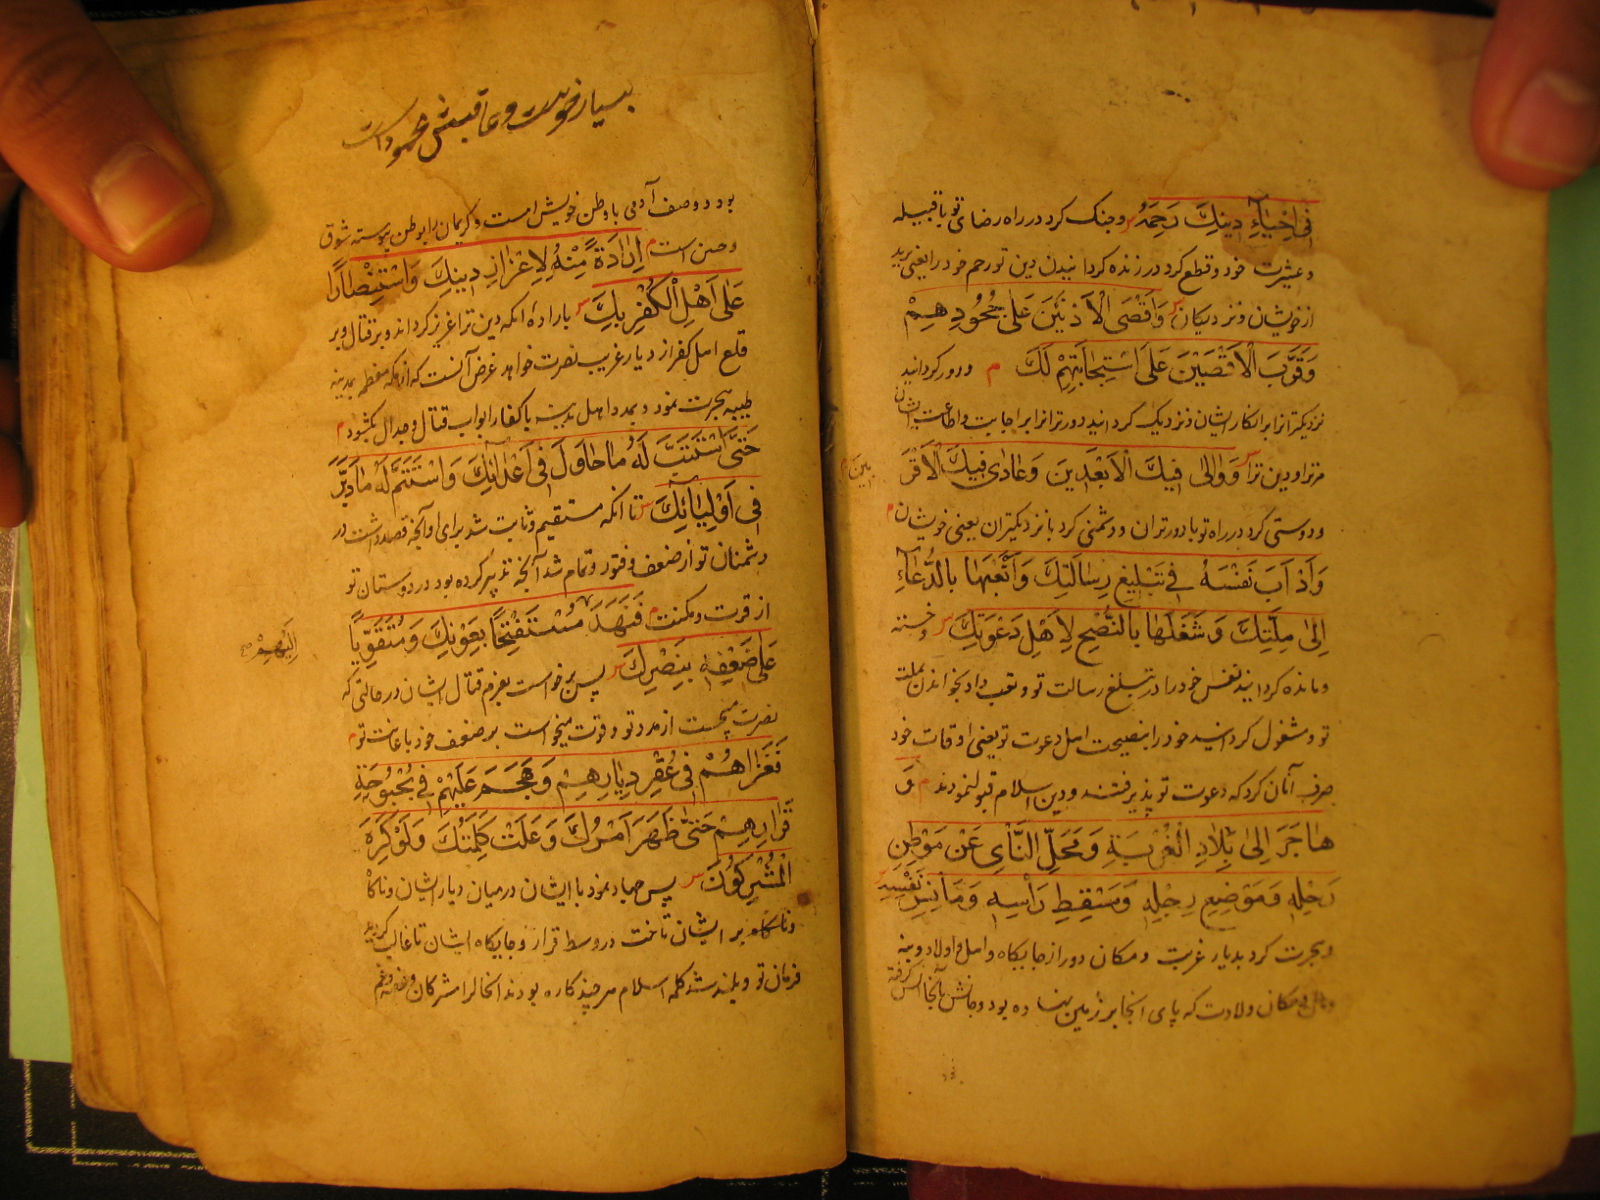 فِی اِحْیَاءِ دِینِكَ رَحِمَهُ س و جنک کرد در راه رضای تو با قبیله
و عشیرت خود و قطع کرد در زنده کردانیدن دین تو رحم خود را یعنی برید
از خویشان و نزدیکان س وَاَقْصَی الْاَدْنَیْنَ عَلیٰ جُحُودِهِمْ
وَقَرَّبَ الْاَقْصَیْنَ عَلَی اسْتِجَابَتِهِمْ لَكَ م و دور کردانید
نزدیکترانرا بر انکار ایشان و نزدیک کردانید دورترانرا بر اجابت و اطاعت ایشان
مر ترا و دین ترا س وَوَالیٰ فِیكَ الْاَبْعَدِینَ وَعَادیٰ فِیكَ الْاَقْرَ
بِینَ م
و دوستی کرد در راه تو با دورتران و دشمنی کرد با نزدیکتران یعنی خویشان م
وَاَدْاَبَ نَفْسَهُ فِی تَبْلِیغِ رِسَالَتِكَ وَاَتْعَبَهَا بِالدُّعَاءِ
اِلیٰ مِلَّتِكَ وَشَغَلَهَا بِالنُّصْحِ لِاَهْلِ دَعْوَتِكَ س و خسته
و مانده کردانید نفس خود را در تبلیغ رسالت تو و تعب داد بخواندن بملت
تو و مشغول کردانید خود را بنصیحت اهل دعوت تو یعنی اوقات خود
صرف آنان کرد که دعوت تو پذیرفتند و دین اسلام قبول نمودند م وَ
هَاجَرَ اِلیٰ بِلَادِ الْغُرْبَةِ وَمَحَلِّ النَّأیِ عَنْ مَوْطِنِ
رَحْلِهِ وَمَوْضِعِ رِجْلِهِ وَمَسْقِطِ رَأْسِهِ وَمَأْنِسِ نَفْسِهِ س
و هجرت کرد بدیار غربت و مکان دور از جایکاه و اهل و اولاد و بنه
و مکان ولادت که پای انجا بر زمین نهاده بود و جانش بآنجا انس گرفته
بسیار خوبست و عاقبتش محمود است
بود و وصف آدمی با وطن خویش است و کریمان را بوطن پیوسته شوق
و حسن است م اِرَادَةً مِنْهُ لِاِعْزَازِ دِینِكَ وَاسْتِنْصَارًا
عَلیٰ اَهْلِ الْكُفْرِ بِكَ س بارادهٔ انکه دین ترا عزیز کرداند و بر قتال و بر
قلع اهل کفر از دیار غریب نصرت خواهد غرض آنست که از مکه معظمه بمدینه
طیبه هجرت نمود و بمدد اهل مدینه با کفار ابواب قتال و جدال بکشود م
حَتَّی اسْتَتَبَّ لَهُ مَا حَاوَلَ فِی اَعْدَائِكَ وَاسْتَتَمَّ لَهُ مَا دَبَّرَ
فِی اَوْلِیَائِكَ س تا انکه مستقیم و ثابت شد برای او آنچه قصد داشت در
دشمنان تو از ضعف و فتور و تمام شد آنچه تدبیر کرده بود در دوستان تو
از قوت و مکنت م فَنَهَدَ مُسْتَفْتِحًا بِعَوْنِكَ وَمُتَقَوِّیًا
اِلَیْهِمْ
عَلیٰ ضَعْفِهِ بِنَصْرِكَ س پس برخواست بعزم قتال ایشان در حالتی که
نصرت میجست از مدد تو و قوت میخواست بر ضعف خود باعانت تو م
فَغَزَاهُمْ فِی عُقْرِ دِیَارِهِمْ وَهَجَمَ عَلَیْهِمْ فِی بُحْبُوحَةِ
قَرَارِهِمْ حَتّیٰ ظَهَرَ اَمْرُكَ وَعَلَتْ كَلِمَتُكَ وَلَوْ كَرِهَ
الْمُشْرِكُونَ س پس جهاد نمود با ایشان در میان دیار ایشان و ناکاه
و ناکاه بر ایشان تاخت در وسط قرار و جایکاه ایشان تا غالب کردید
فرمان تو و بلند شد کلمه اسلام هر چند کاره بودند انحال را مشرکان